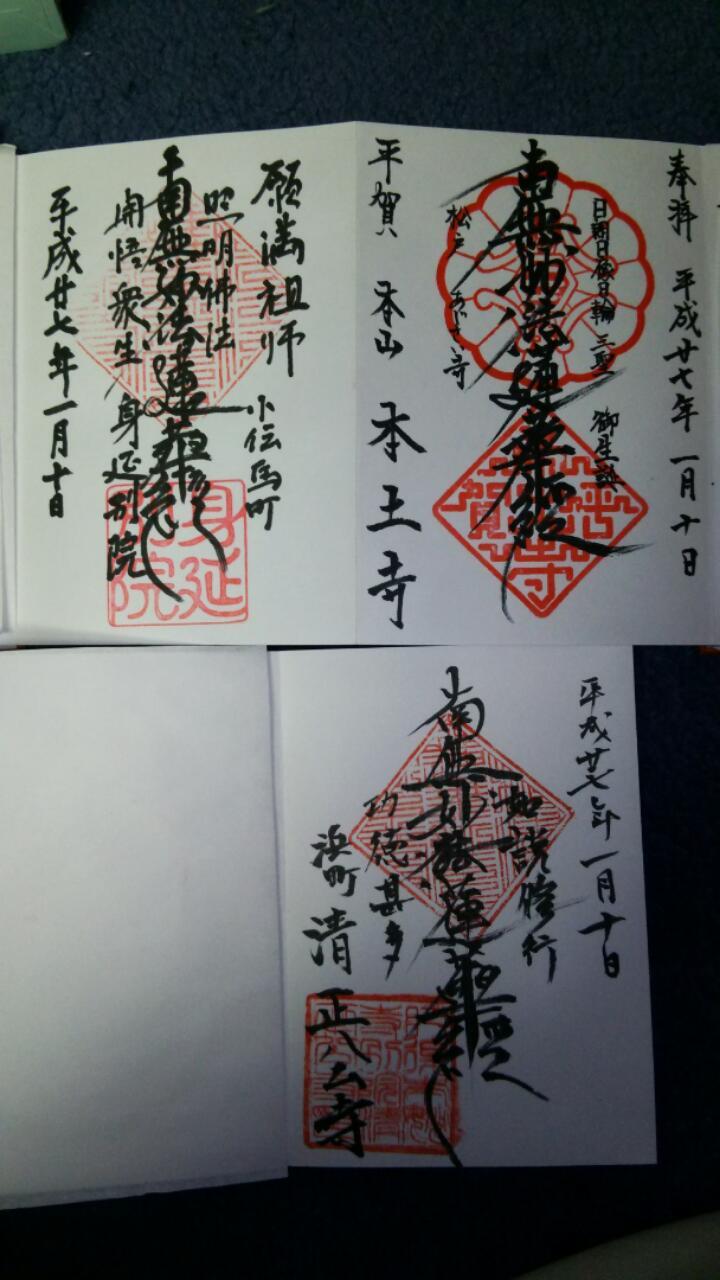 奉拝 平成廿七年一月十日
日朗日像日輪三聖 御生誕
南無妙法蓮華経
松戸 あじさい寺
平賀 本山 本土寺
願満祖師
小伝馬町
照明佛法
南無妙法蓮華経
開悟衆生 身延別院
身延別院
平成廿七年一月十日
平成廿七年一月十日
如説修行
南無妙法蓮華経
功徳甚多
浜町 清正公寺